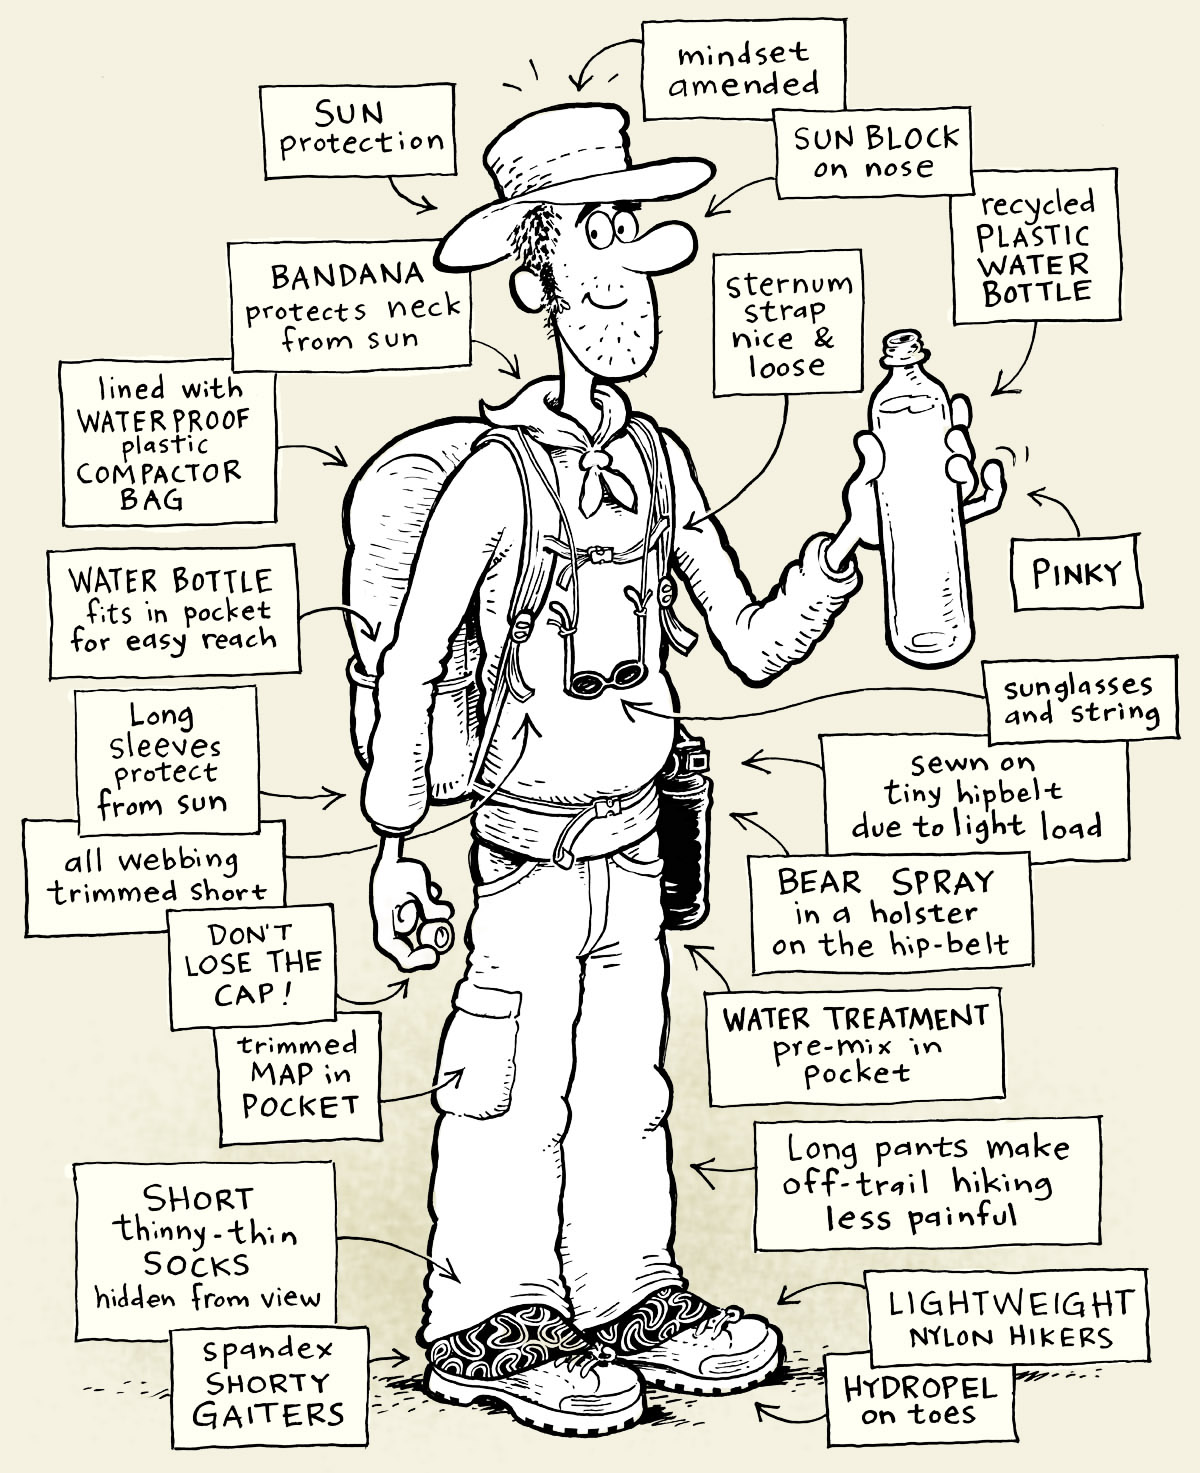 mindset
amended
SUN
protection
SUN BLOCK
on nose
recycled
PLASTIC
WATER
BOTTLE
BANDANA
protects neck
from sun
sternum
strap
nice &
loose
lined with
WATERPROOF
plastic
COMPACTOR
BAG
PINKY
WATER BOTTLE
fits in pocket
for easy reach
sunglasses
and string
Long
sleeves
protect
from sun
sewn on
tiny hipbelt
due to light load
all webbing
trimmed short
BEAR SPRAY
in a holster
on the hip-belt
DON'T
LOSE THE
CAP!
WATER TREATMENT
pre-mix in
pocket
trimmed
MAP in
POCKET
Long pants make
off-trail hiking
less painful
SHORT
thinny-thin
SOCKS
hidden from view
LIGHTWEIGHT
NYLON HIKERS
spandex
SHORTY
GAITERS
HYDROPEL
on toes